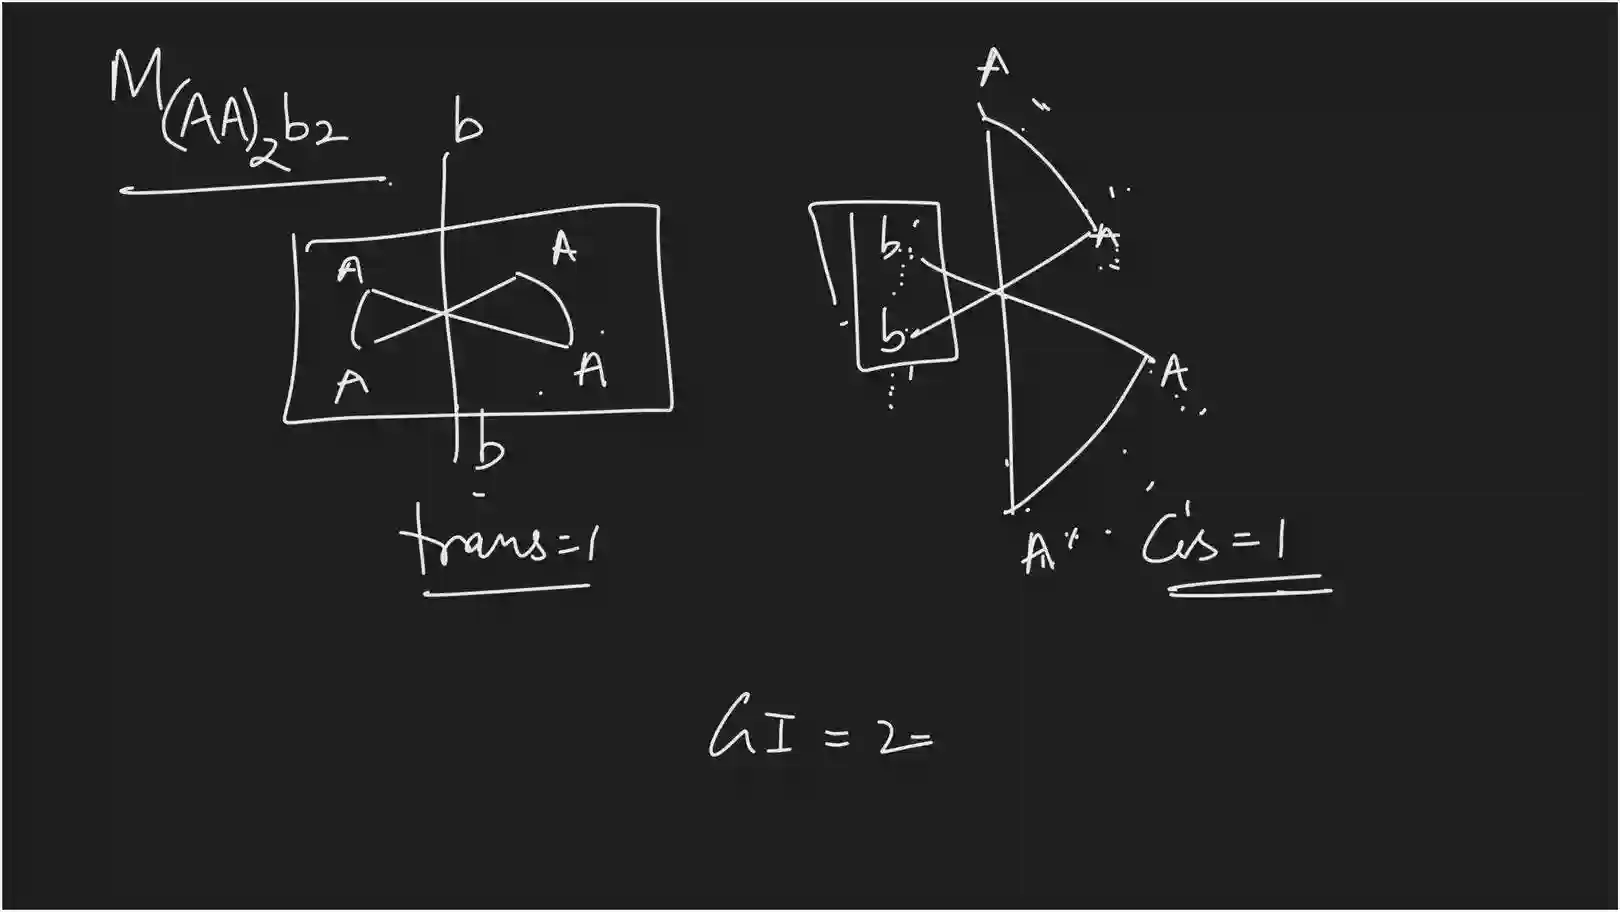 M(AA)2b2
b
A
A
A
A
b
trans=1
A
b
A
b
A
A
Cis = 1
GI = 2=